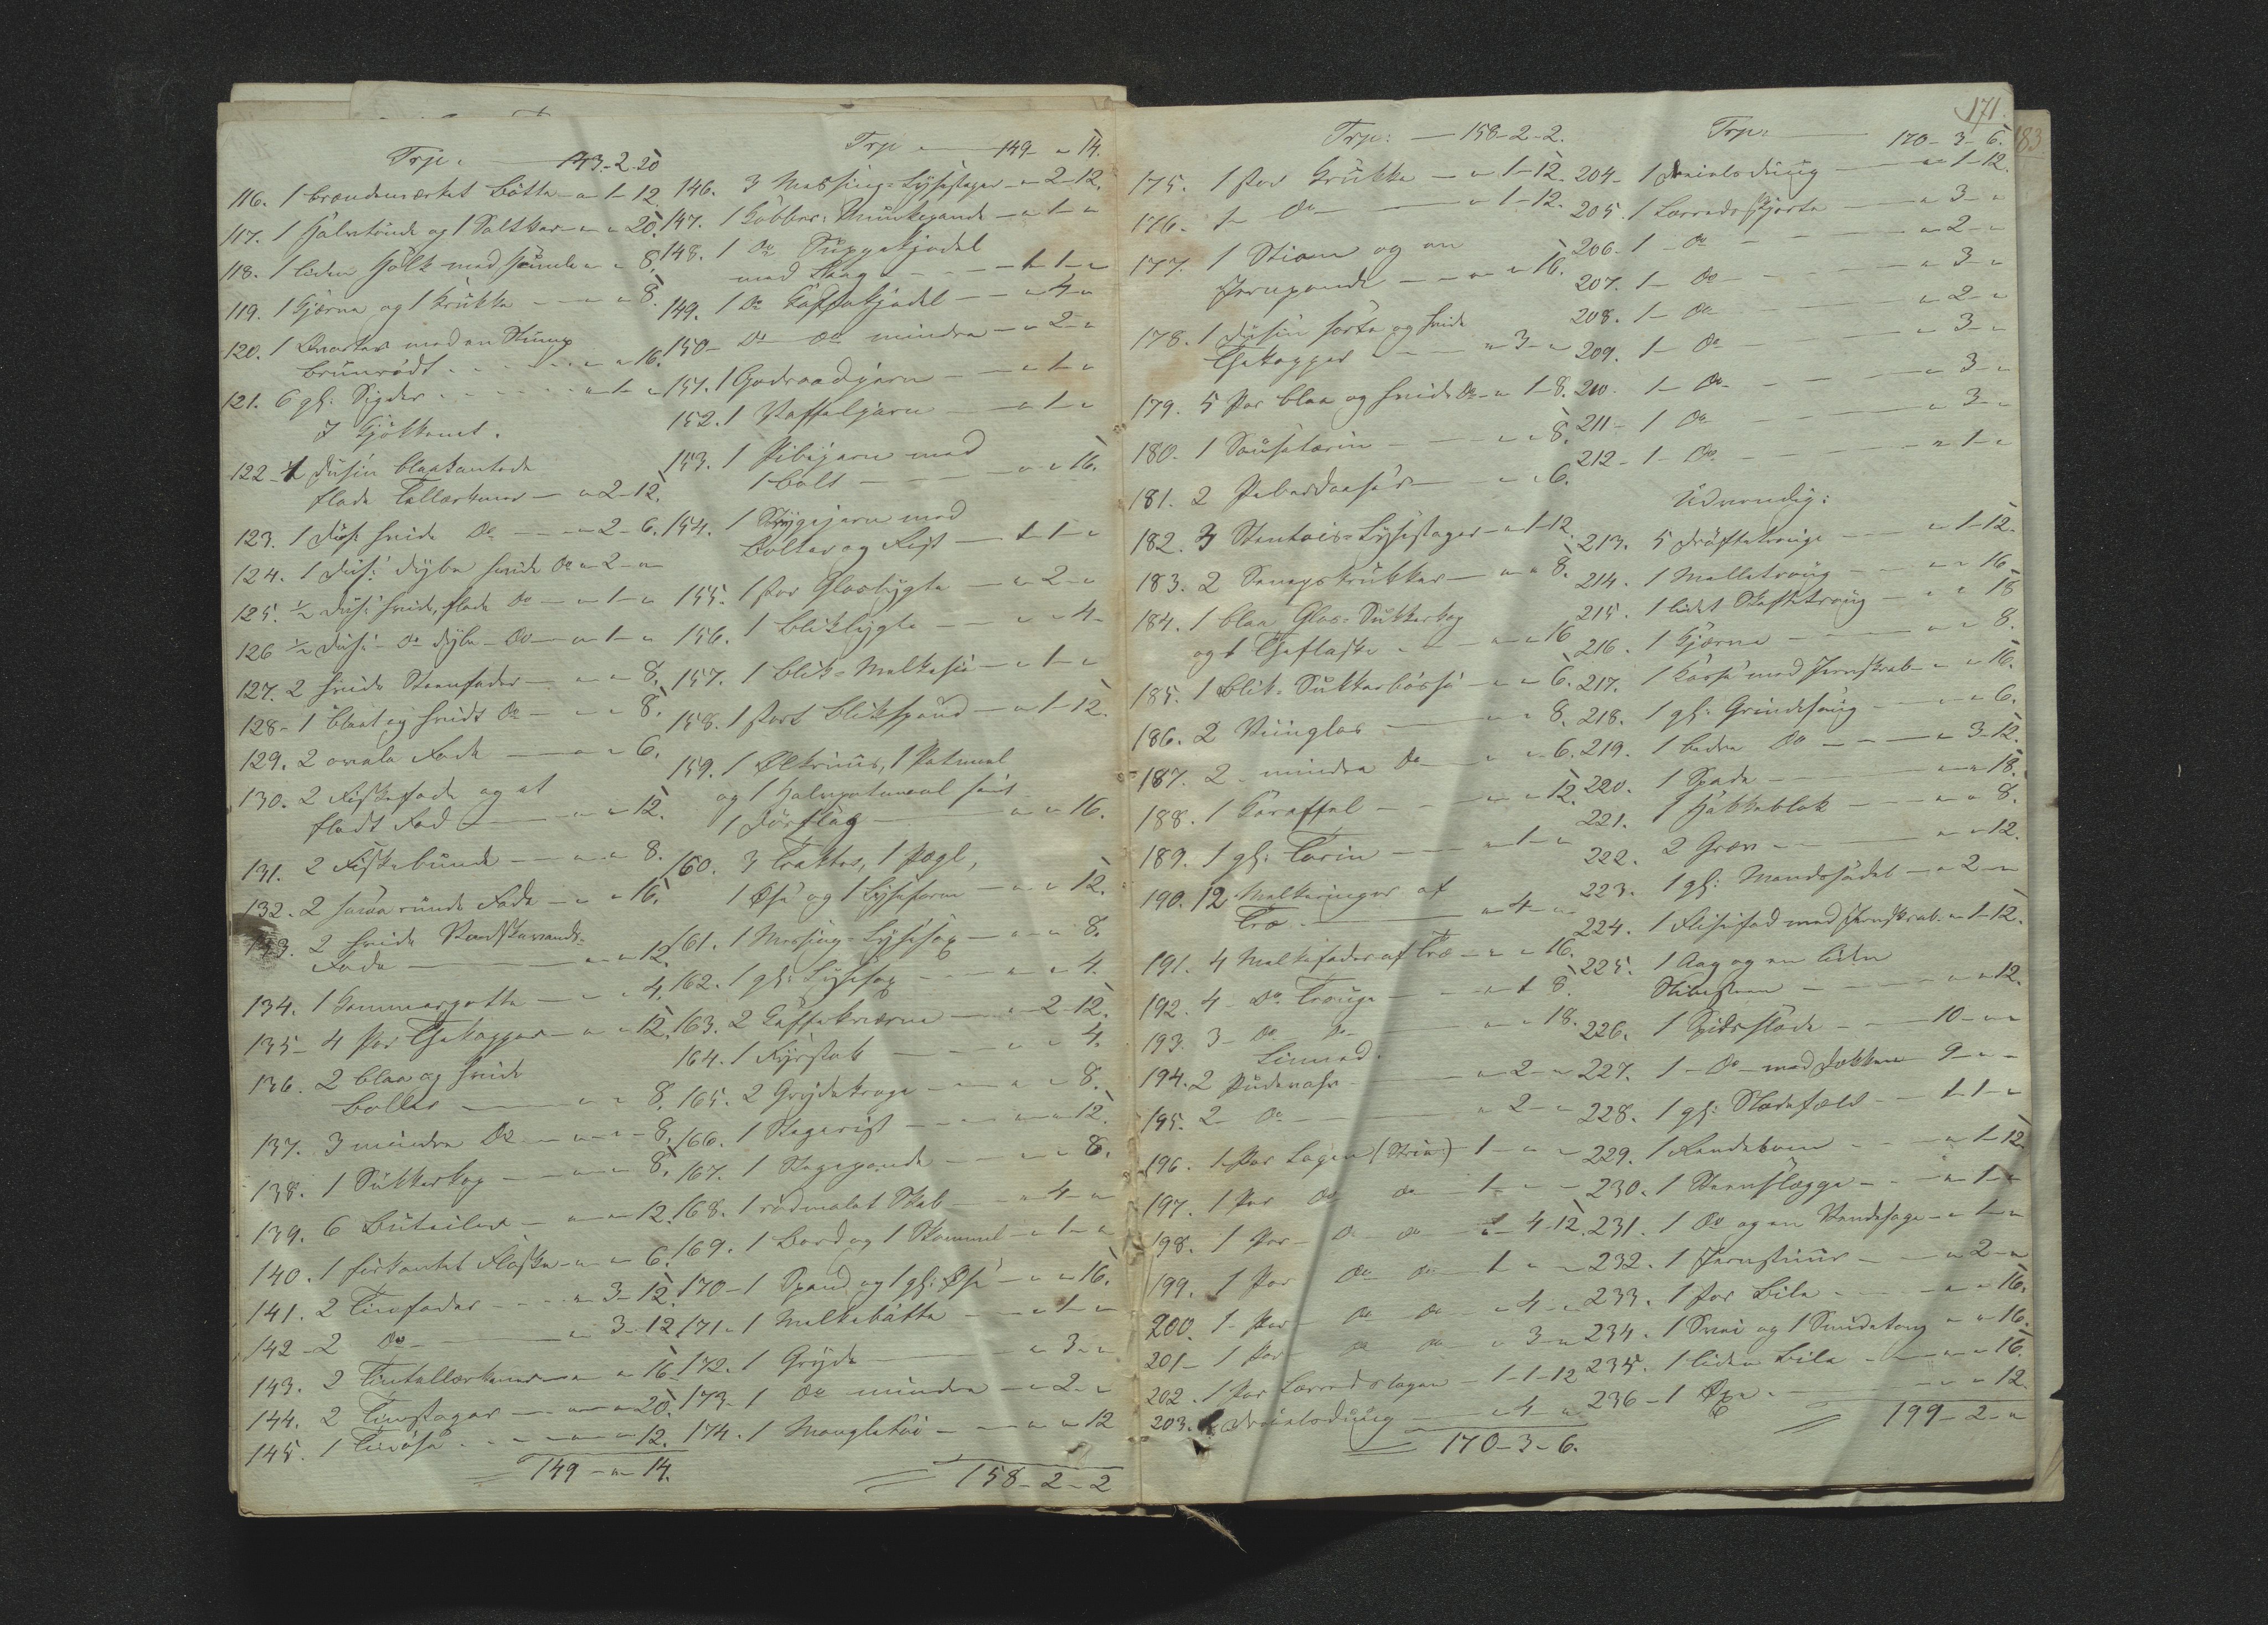 Trp. — 143-2-20
116. 1 brændemærket Bøtte — " 1-12
117. 1 Halvtønde og 1 Saltkar — " " 20.
118. 1 liden Hølk med Humle " " 8.
119. 1 Kjærne og 1 Krukke — " " 8.
120. 1 Qvarter med en Slump
brunrødt . . . . . " " 16.
121. 6 gl: Sigder . . . . . " 1 "
I Kjøkkenet.
122. 1 Dusin blaakantede
flade Tallerkener — " 2-12.
123. 1 Dus: hvide Do — " 2-6.
124. 1 Dus: dybe hvide Do " 2 "
125. ½ Dus: hvide, flade Do — " 1 "
126 ½ Dus: - Do dybe - Do — " 1 "
127. 2 hvide Steenfader — " " 8.
128. 1 blaat og hvidt Do — " " 8.
129. 2 ovale Fade — " " 6.
130. 2 Fiskefade og et
fladt Fad — " " 12.
131. 2 Fiskebunde — " " 8.
132. 2 smaa runde Fade — " " 16.
133. 2 hvide Vandskevands-
Fade — " " 12.
134. 1 Kammerpotte — " " 4.
135. 4 Par Thekopper — " " 12.
136. 2 blaa og hvide
Boller — " " 8.
137. 3 mindre Do — " " 8.
138. 1 Sukkerkop — " " 8.
139. 6 Buteiller — " " 12.
140. 1 firkantet Flaske — " " 6.
141. 2 Tinfader — " 3-12.
142. 2 Do — " 3-12
143. 2 Tintallerkener — " " 16.
144. 2 Tinstager — " " 20.
145. 1 Tinøse — " " 12.
149 - " 14.
Trp — 149- " 14.
146. 3 Messing-Lysestager — " 2-12.
147. 1 Kobber-Munkepande — " 1 "
148. 1 Do Suppekjedel
med Laag — 1-1- "
149. 1 Do Kaffekjedel — " 4 "
150. Do Do mindre — " 2 "
151. 1 Goderaadjern — " 1 "
152. 1 Vaffeljern — " 1 "
153. 1 Pibejern med
1 bolt — " " 16.
154. 1 Strygejern med
Bolter og Rist — 1-1 "
155. 1 stor Glaslygte — " 2 "
156. 1 Bliklygte — " " 4.
157. 1 Blik-Melkesie — " 1 "
158. 1 stort Blikspand — " 1-12.
159. 1 Ølkruus, 1 Potmaal
og 1 Halvpotmaal samt
1 Dørslag — " " 16.
160. 3 Trakter, 1 Pægl,
1 Øse og 1 Lyseform — " " 12.
161. 1 Messing-Lysesax — " " 8.
162. 1 gl: Lysesax — " " 4.
163. 2 Kaffekværne — " 2-12.
164. 1 Fyrstok — " " 4.
165. 2 Grydekroge — " " 8.
166. 1 Stegerist — " " 12.
167. 1 Stegepande — " " 8.
168. 1 rødmalet Skab — " 4 "
169. 1 Bord og 1 Skammel — " 1 "
170. 1 Spand og 1 gl: Øse — " " 16.
171. 1 Melkebøtte — " 1 "
172. 1 Gryde — " 3 "
173. 1 Do mindre — " 2 "
174. 1 Mangletøi — " " 12
158-2-2
Trp: — 158-2-2.
175. 1 stor Krukke — " 1-12.
176. 1 Do — " 1-12.
177. 1 og en
Jernpande — " " 16.
178. 1 Dusin sorte og hvide
Thekopper — " 3 "
179. 5 Par blaa og hvide Do " 1-8.
180. 1 Sauseterin — " " 8.
181. 2 Peberdaaser — " " 6.
182. 3 Stentøis-Lysestager " 1-12.
183. 2 Senepskrukker — " " 8.
184. 1 blaa Glas-Sukkerkop
og 1 Theflaske — " " 16
185. 1 Blik-Sukkerbøsse — " " 6.
186. 2 Viinglas — " " 8.
187. 2 mindre Do — " " 6.
188. 1 Karaffel — " " 12.
189. 1 gl: Terin — " 1 "
190. 12 Melkeringer af
Træ — " 4 "
191. 4 Melkefader af Træ — " " 16.
192. 4 Do Trouge — " 1 8.
193. 3 Do Do — " " 18.
Linned.
194. 2 Pudevahr — " 2 "
195. 2 Do — " 2 "
196. 1 Par Lagen (Strie) — 1 " "
197. 1 Par Do Do — 1 " "
198. 1 Par Do Do — " 4-12
199. 1 Par Do Do — 1 " "
200. 1 Par Do Do — " 4 "
201. 1 Par Do Do — " 3 "
202. 1 Par Lærredslagen — 1-1-12
203. 1 Dreielsdug — " 4 "
170-3-6.
171.
183
Trp: — 170-3-6.
204. 1 Dreielsdug — " 1-12.
205. 1 Lærreds Skjorte — " 3 "
206. 1 Do — " 2 "
207. 1 Do — " 3 "
208. 1 Do — " 2 "
209. 1 Do — " 3 "
210. 1 Do — " 3 "
211. 1 Do — " 3 "
212. 1 Do — " 1 "
Udvendig:
213. 5 Drøftetruge — " 1-12.
214. 1 Melletroug — " " 16
215. 1 lidet Skaftetroug — " " 18
216. 1 Kjærne — " " 8.
217. 1 Karse med Jernskrab — " " 16.
218. 1 gl: Grindesaug — " " 6.
219. 1 bedre Do — " 3-12.
220. 1 Spade — " " 18.
221. 1 Hakkeblok — " " 8.
222. 2 Græv — " " 12.
223. 1 gl: Mandssadel — " 2 "
224. 1 Flisefad med Jernskrab " 1-12.
225. 1 Aag og en liden
— " " 12.
226. 1 Spidsslæde — 10 " "
227. 1 - Do - med Dækken 9 " "
228. 1 gl: Slædefæld — 1-1 "
229. 1 Rendebom — " 1-12
230. 1 Steenslægge — " 1 "
231. 1 Do og en Vendesage — " 1 "
232. 1 Jernstuur — " 2 "
233. 1 stor Bile — " " 16.
234. 1 Snei og 1 Smidetang " " 16.
235. 1 liden Bile — " " 16.
236. 1 Øxe — " " 12.
199-2- "